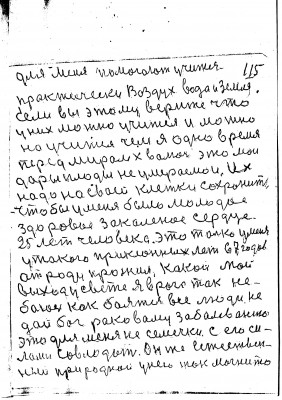 для меня помогают учится 115
практически Воздух вода и земля.
если вы этому верите что
у них можно учится и можно
но учится чем я одно время
перед миром х вамач это мои
дары плоды не умираемои, Их
надо на своей клетки сохронить,
чтобы у меня было молодое
здоровое закаленое сердце.
25 лет человека. Это только у меня
у такого преклонных лет 67 годов
от роду прожил, Какой мой
выход у свете Я врого так не
боюсь как боятся все люди, не
дай бог раковому забалеванию
это для меня не семечки. с его си-
лами Совлодат. Он же естествен-
ный природной у него так могнито